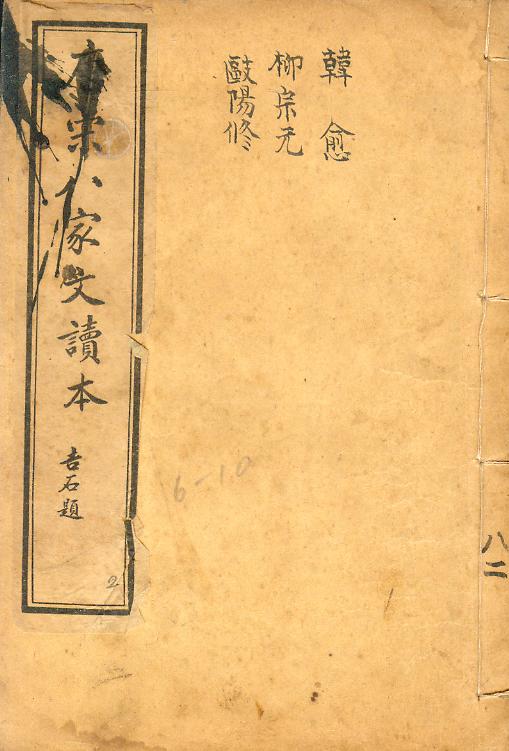 韓愈
柳宗元
歐陽修
唐宋八家文讀本
吉石題
6-10
2
八二